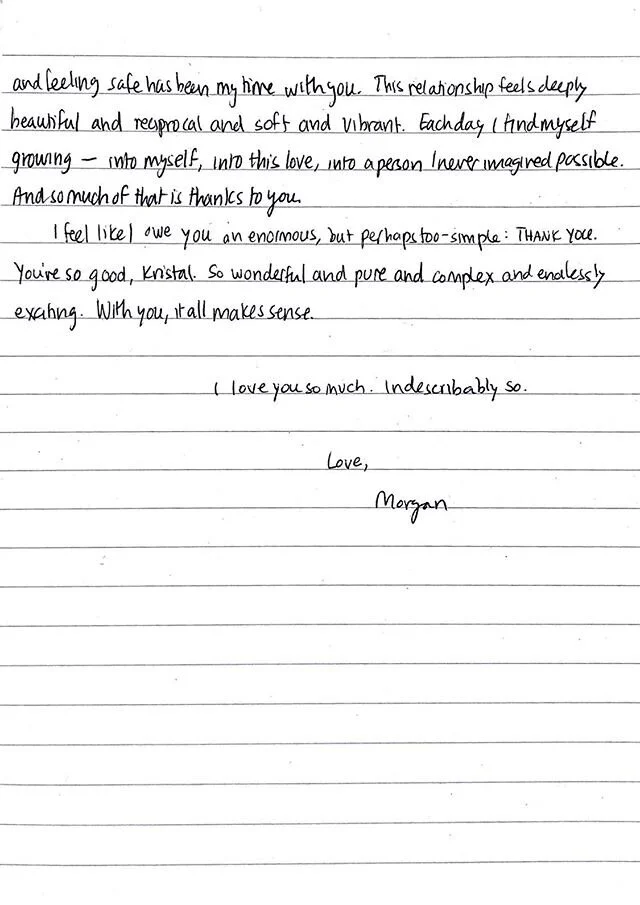 and feeling safe has been my time with you. This relationship feels deeply
beautiful and reciprocal and soft and vibrant. Each day I find myself
growing — into myself, into this love, into a person I never imagined possible.
And so much of that is thanks to you.
I feel like I owe you an enormous, but perhaps too-simple: THANK YOU.
You're so good, Kristal. So wonderful and pure and complex and endlessly
exciting. With you, it all makes sense.
I love you so much. Indescribably so.
Love,
Morgan